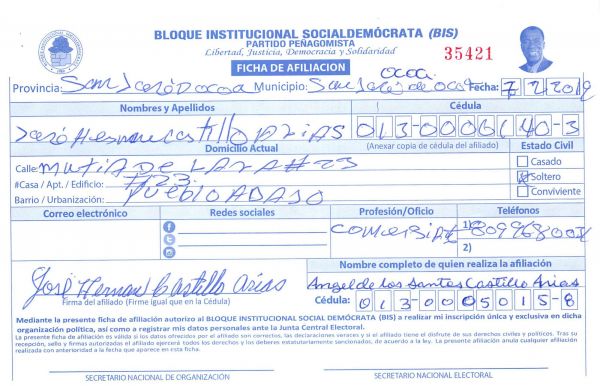 BLOQUE INSTITUCIONAL SOCIALDEMÓCRATA (BIS)
PARTIDO PEÑAGOMISTA
Libertad, Justicia, Democracia y Solidaridad
35421
FICHA DE AFILIACION
Provincia: San José D ocoa Municipio: San José de ocoa Fecha: 7/2/2019
Nombres y Apellidos Cédula
José Hernan castillo ARIAS 013-0006140-3
Domicilio Actual (Anexar copia de cédula del afiliado) Estado Civil
Calle: MUTIA DE LARA # 23 Casado
#Casa / Apt. / Edificio: #23 Soltero
Barrio / Urbanización: PUEBLO ABAJO Conviviente
Correo electrónico Redes sociales Profesión/Oficio Teléfonos
1)
2)
José Hernan Castillo Arias
Firma del afiliado (Firme igual que en la Cédula)
Nombre completo de quien realiza la afiliación
Angel de los Santos Castillo Arias
Cédula: 013-0005015-8
Mediante la presente ficha de afiliación autorizo al BLOQUE INSTITUCIONAL SOCIAL DEMÓCRATA (BIS) a realizar mi inscripción única y exclusiva en dicha
organización política, así como a registrar mis datos personales ante la Junta Central Electoral.
La presente ficha de afiliación es válida si los datos ofrecidos por el afiliado son correctos, las declaraciones veraces y si el afiliado tiene el disfrute de sus derechos civiles y políticos. Tras su
recepción, sello y firmas autorizadas el afiliado ejercerá todos los derechos y los deberes estatutariamente sancionados, de acuerdo a la ley. La presente afiliación anula cualquier afiliación
realizada con anterioridad a la fecha que aparece en esta ficha.
SECRETARIO NACIONAL DE ORGANIZACIÓN SECRETARIO NACIONAL ELECTORAL